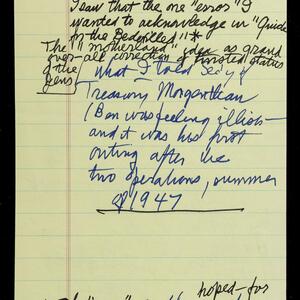 I saw that the one "error" I
wanted to acknowledge in "Guide
for the Bedevilled"*
The "motherland" idea as grand
over-all correction of twisted status
of the Jews
What I told Sec'y of
Treasury Morgenthau
(Ben was feeling illish—
and it was his first
outing after his
two operations, summer
of 1947
hoped-for